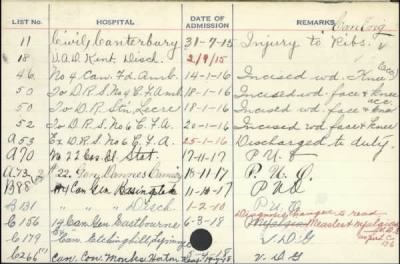 LIST No. HOSPITAL DATE OF ADMISSION REMARKS
11 Civil, Canterbury 31-7-15 Injury to Ribs.
18 V.A.D. Kent. Disch. 2/9/15
46 No 4 Can. Fd. Amb. 14-1-16 Incised wd. Knee (acc)
50 To D.R.S. No 6 C.F.A. 18-1-16 Incised wd. face & knee
50 To D.R. Stn, Locre 18-1-16 Incised wd. face & knee
52 To D.R.S. No 6 C.F.A. 20-1-16 Incised wd face & knee
A53 Ex D.R.S. No 6 C.F.A. 25-1-16 Discharged to duty.
A70 No 22 Gen. Stat. 17-11-17 P.U.O.
A73 22. Gen, Dannes Camiers P.U.O.
B88 4 Can Gen Basingstoke 11-10-17 P.U.O
B131 " " Disch 1-2-18 P.U.O
C156 14 Can. Gen. Eastbourne 6-3-18 Diagnosis changed to read Measles
C179 Can. Etchinghill, Lyminge V.D.G
C266 Can. Con. Monks Horton V.D.G